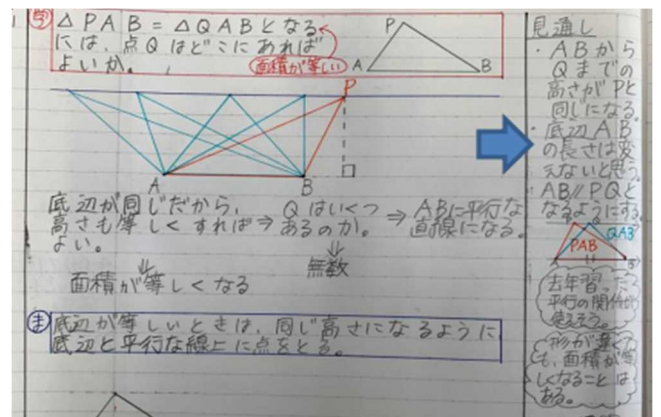 学 △PAB=△QABとなる
には、点Qはどこにあれば
よいか。
面積が等しい
P
A
B
P
A
B
底辺が同じだから、
高さも等しくすれば
よい。
⇒ Qはいくつ
あるのか。
⇒ ABに平行な
直線になる。
⇓
面積が等しくなる
⇓
無数
ま 底辺が等しいときは、同じ高さになるように
底辺と平行な線上に点をとる。
見通し
・ABから
Qまでの
高さがPと
同じになる。
・底辺AB
の長さは変
えないと思う。
・AB//PQと
なるようにする。
PAB
QAB
去年習った
平行の関係が
使えそう。
形が違くて
も、面積が等
しくなることは
ある。